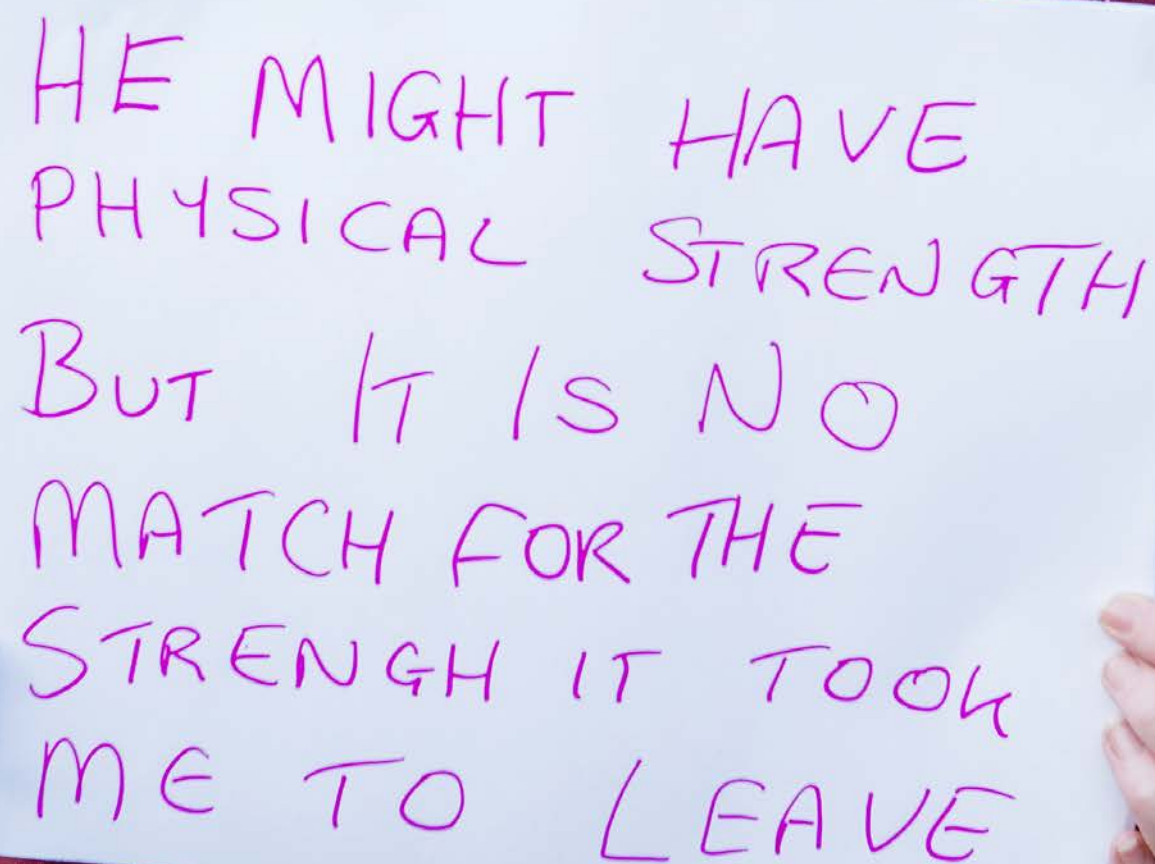 HE MIGHT HAVE
PHYSICAL STRENGTH
BUT IT IS NO
MATCH FOR THE
STRENGH IT TOOK
ME TO LEAVE